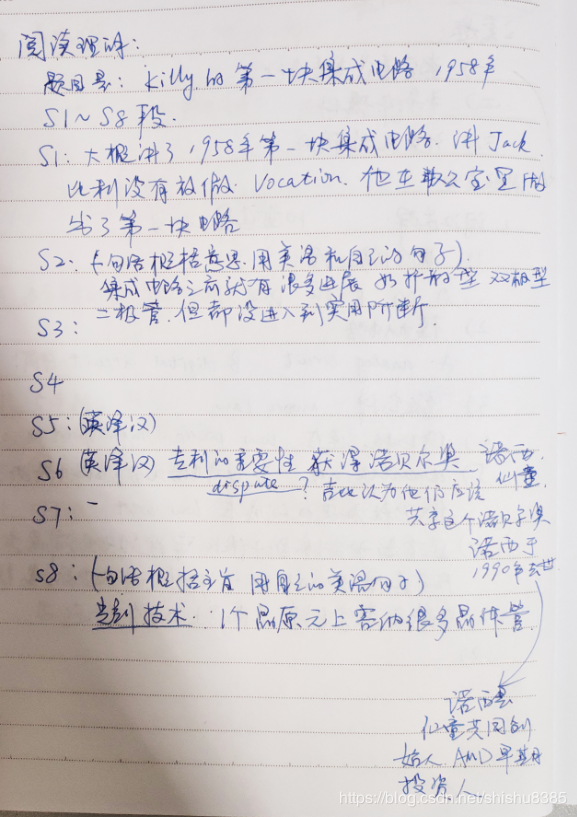 阅读理解:
题目是: killy.的第一块集成电路 1958年
S1~S8段.
S1: 大概讲了1958年第一块集成电路. 讲Jack
比利没有放假 Vocation. 他在办公室里做
出了第一块电路
S2: (一句话概括意思. 用英语和自己的句子).
集成电路之前就有很多进展 如扩散型 双极型
二极管. 但都没进入到实用阶断.
S3:
S4
S5: (英译汉)
S6 (英译汉) 专利的重要性 获得诺贝尔奖 诺西.
仙童.
dispute ? 吉比认为他们应该
共享这个诺贝尔奖
S7: -
诺西于
1990年去世
S8: (一句话概括主旨 用自己的英语句子)
刻技术. 1个晶原元上容纳很多晶体管.
诺西是
仙童共同创
始人 AMD早期
投资人
https://blog.csdn.net/shishu8385